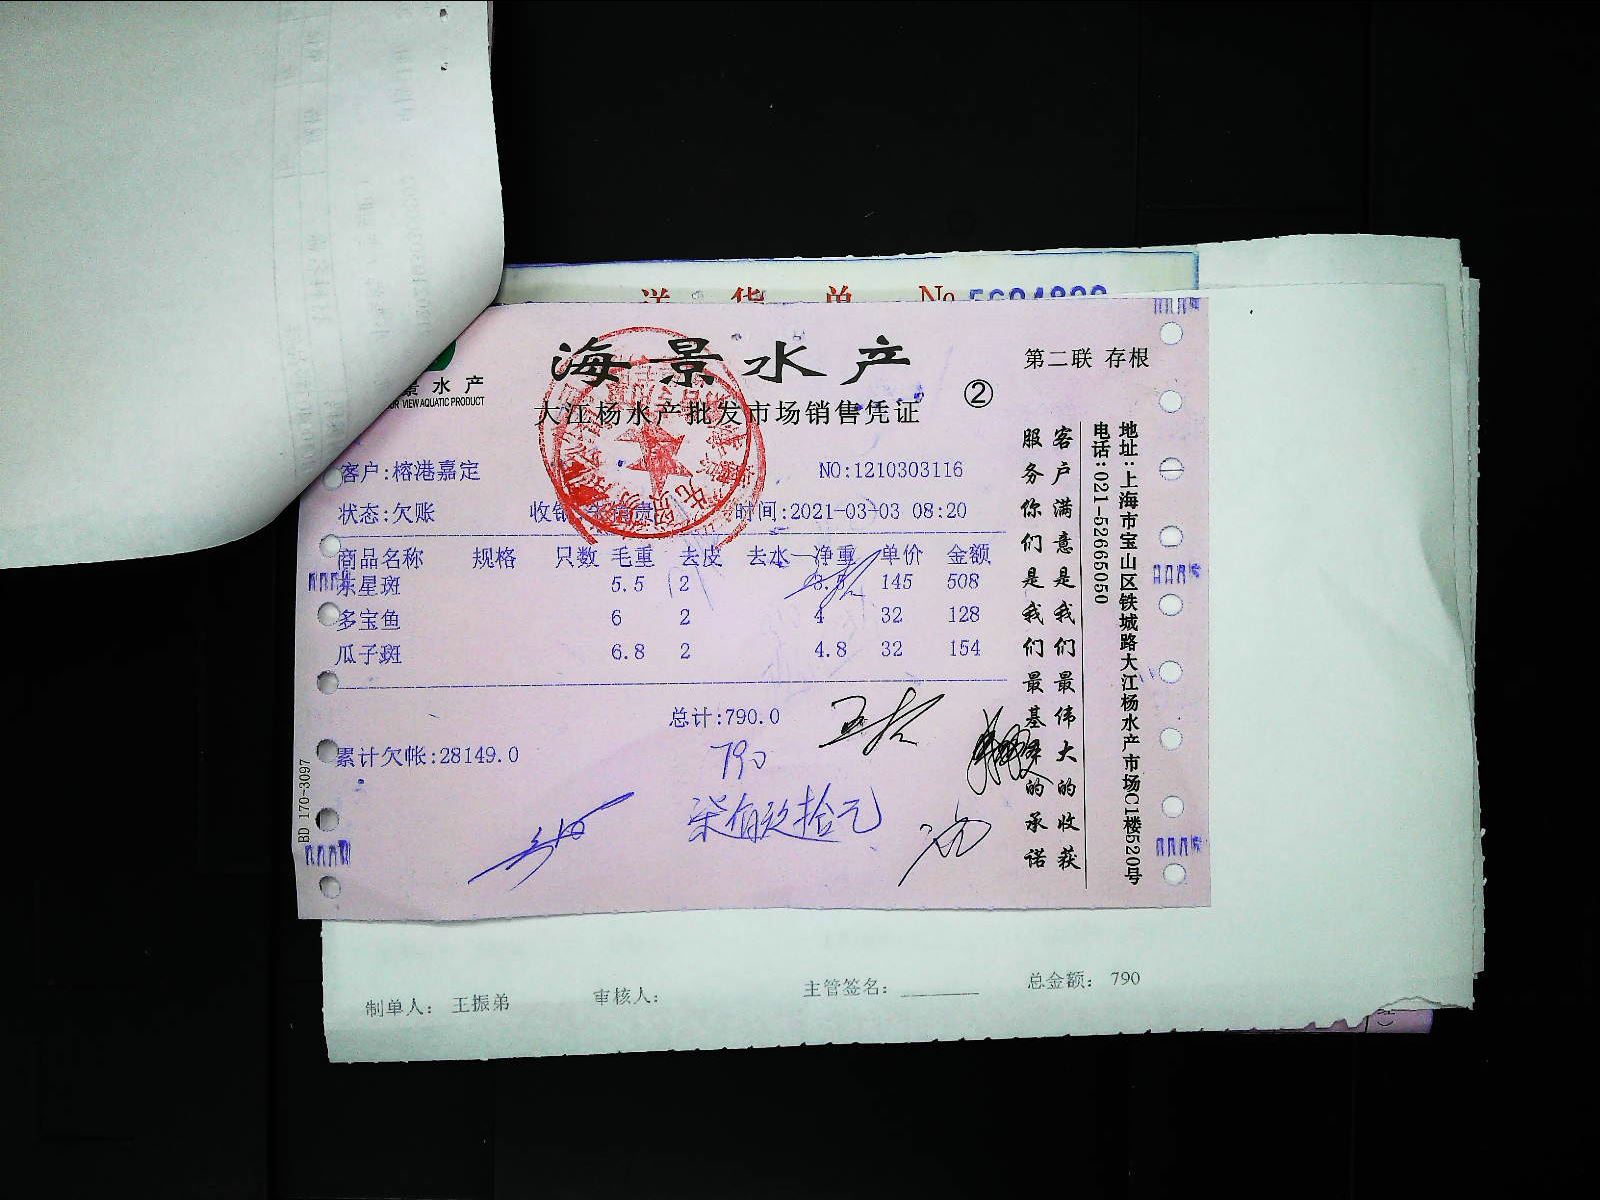 送货单 No
海景水产
第二联 存根
②
景水产
VIEW AQUATIC PRODUCT
大江杨水产批发市场销售凭证
客户:榕港嘉定 NO:1210303116
状态:欠账 收银 时间:2021-03-03 08:20
商品名称 规格 只数 毛重 去皮 去水 净重 单价 金额
东星斑 5.5 2 3.5 145 508
多宝鱼 6 2 4 32 128
瓜子斑 6.8 2 4.8 32 154
总计:790.0
累计欠帐:28149.0
790
柒佰玖拾元
客户满意是我们最伟大的收获
服务你们是我们最基本的承诺
地址:上海市宝山区铁城路大江杨水产市场C1楼520号
电话:021-52665050
BD 170-3097
制单人: 王振弟 审核人: 主管签名: 总金额: 790